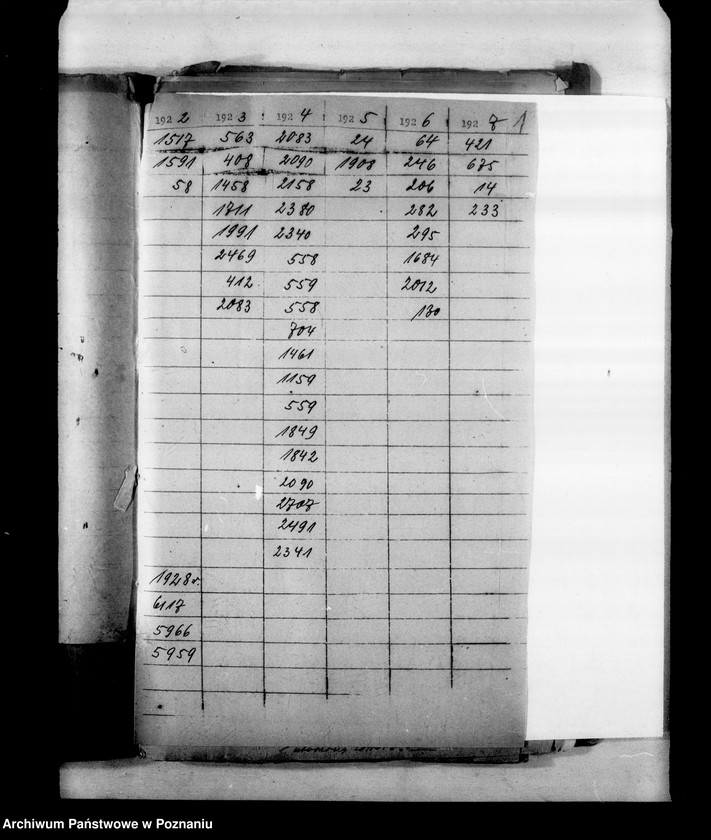 1922 1923 1924 1925 1926 1927 1
1517 563 2083 24 64 421
1591 408 2090 1908 246 675
58 1458 2158 23 206 14
1711 2380 282 233
1991 2340 295
2469 558 1684
412 559 2012
2083 558 130
704
1461
1159
559
1849
1842
2090
2707
2491
2341
1928 r.
6117
5966
5959
Archiwum Państwowe w Poznaniu